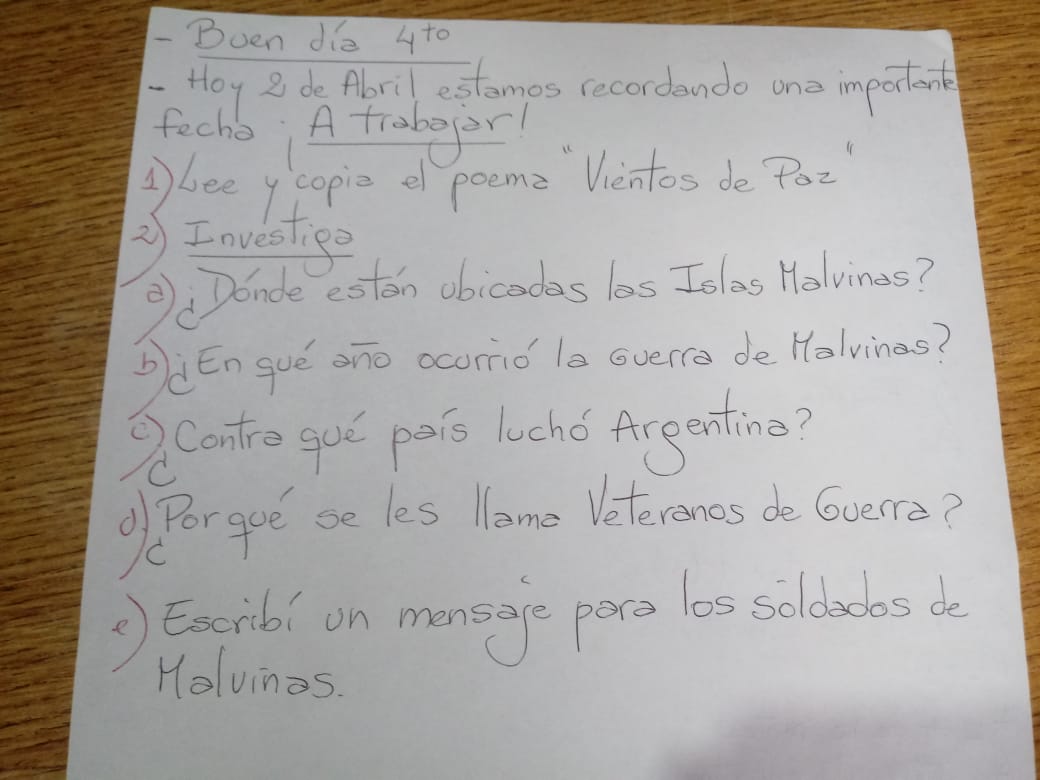 - Buen día 4to
- Hoy 2 de Abril estamos recordando una importante
fecha ¡A trabajar!
1) Lee y copia el poema "Vientos de Paz"
2) Investiga
a) ¿Dónde están ubicadas las Islas Malvinas?
b) ¿En qué año ocurrió la Guerra de Malvinas?
c) ¿Contra qué país luchó Argentina?
d) ¿Por qué se les llama Veteranos de Guerra?
e) Escribí un mensaje para los soldados de
Malvinas.